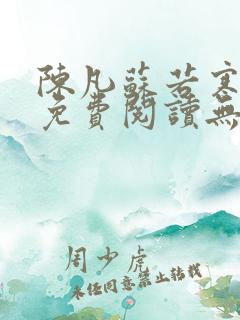 陳凡蘇若寒
免費閱讀無
周少虎
未经同意禁止转载